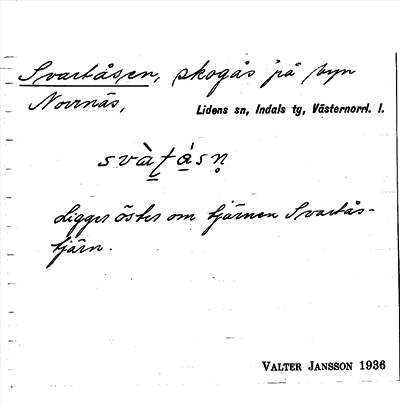 Svartåsen, skogås på byn
Norrnäs,
Lidens sn, Indals tg, Västernorrl. l.
svàt́ásn̥
Ligger öster om tjärnen Svartås-
tjärn.
VALTER JANSSON 1936